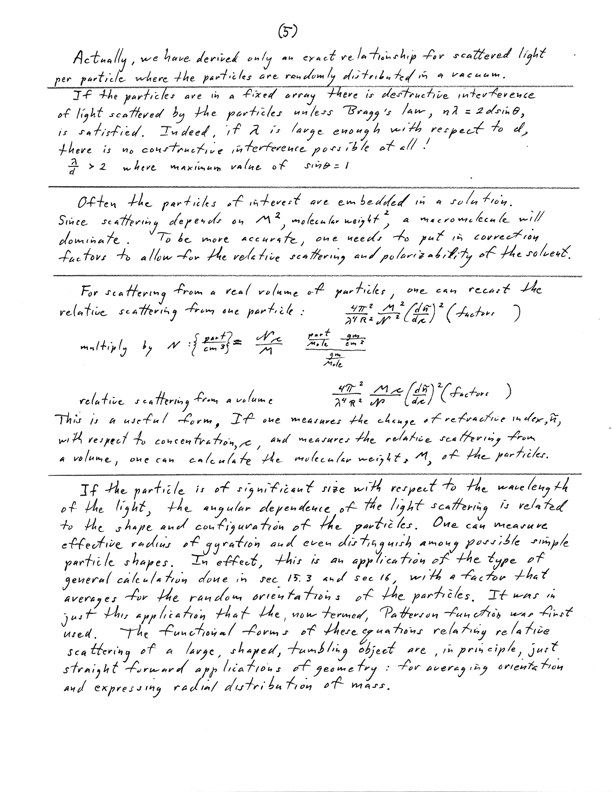 (5)
Actually, we have derived only an exact relationship for scattered light
per particle where the particles are randomly distributed in a vacuum.
If the particles are in a fixed array there is destructive interference
of light scattered by the particles unless Bragg's law, nλ = 2dsinθ,
is satisfied. Indeed, if λ is large enough with respect to d,
there is no constructive interference possible at all!
λ/d > 2 where maximum value of sinθ = 1
Often the particles of interest are embedded in a solution.
Since scattering depends on M², molecular weight², a macromolecule will
dominate. To be more accurate, one needs to put in correction
factors to allow for the relative scattering and polarizability of the solvent.
For scattering from a real volume of particles, one can recast the
relative scattering from one particle: 4π²/λ⁴R² M²/N² (dñ/dc)² (factors )
multiply by N:{part/cm³} = Nc/M part/Mole gm/cm³ / gm/Mole
relative scattering from a volume 4π²/λ⁴R² Mc/N (dñ/dc)² (factors )
This is a useful form. If one measures the change of refractive index, ñ,
with respect to concentration, c, and measures the relative scattering from
a volume, one can calculate the molecular weight, M, of the particles.
If the particle is of significant size with respect to the wavelength
of the light, the angular dependence of the light scattering is related
to the shape and configuration of the particles. One can measure
effective radius of gyration and even distinguish among possible simple
particle shapes. In effect, this is an application of the type of
general calculation done in sec 15.3 and sec 16, with a factor that
averages for the random orientations of the particles. It was in
just this application that the, now termed, Patterson function was first
used. The functional forms of these equations relating relative
scattering of a large, shaped, tumbling object are, in principle, just
straight forward applications of geometry: for averaging orientation
and expressing radial distribution of mass.